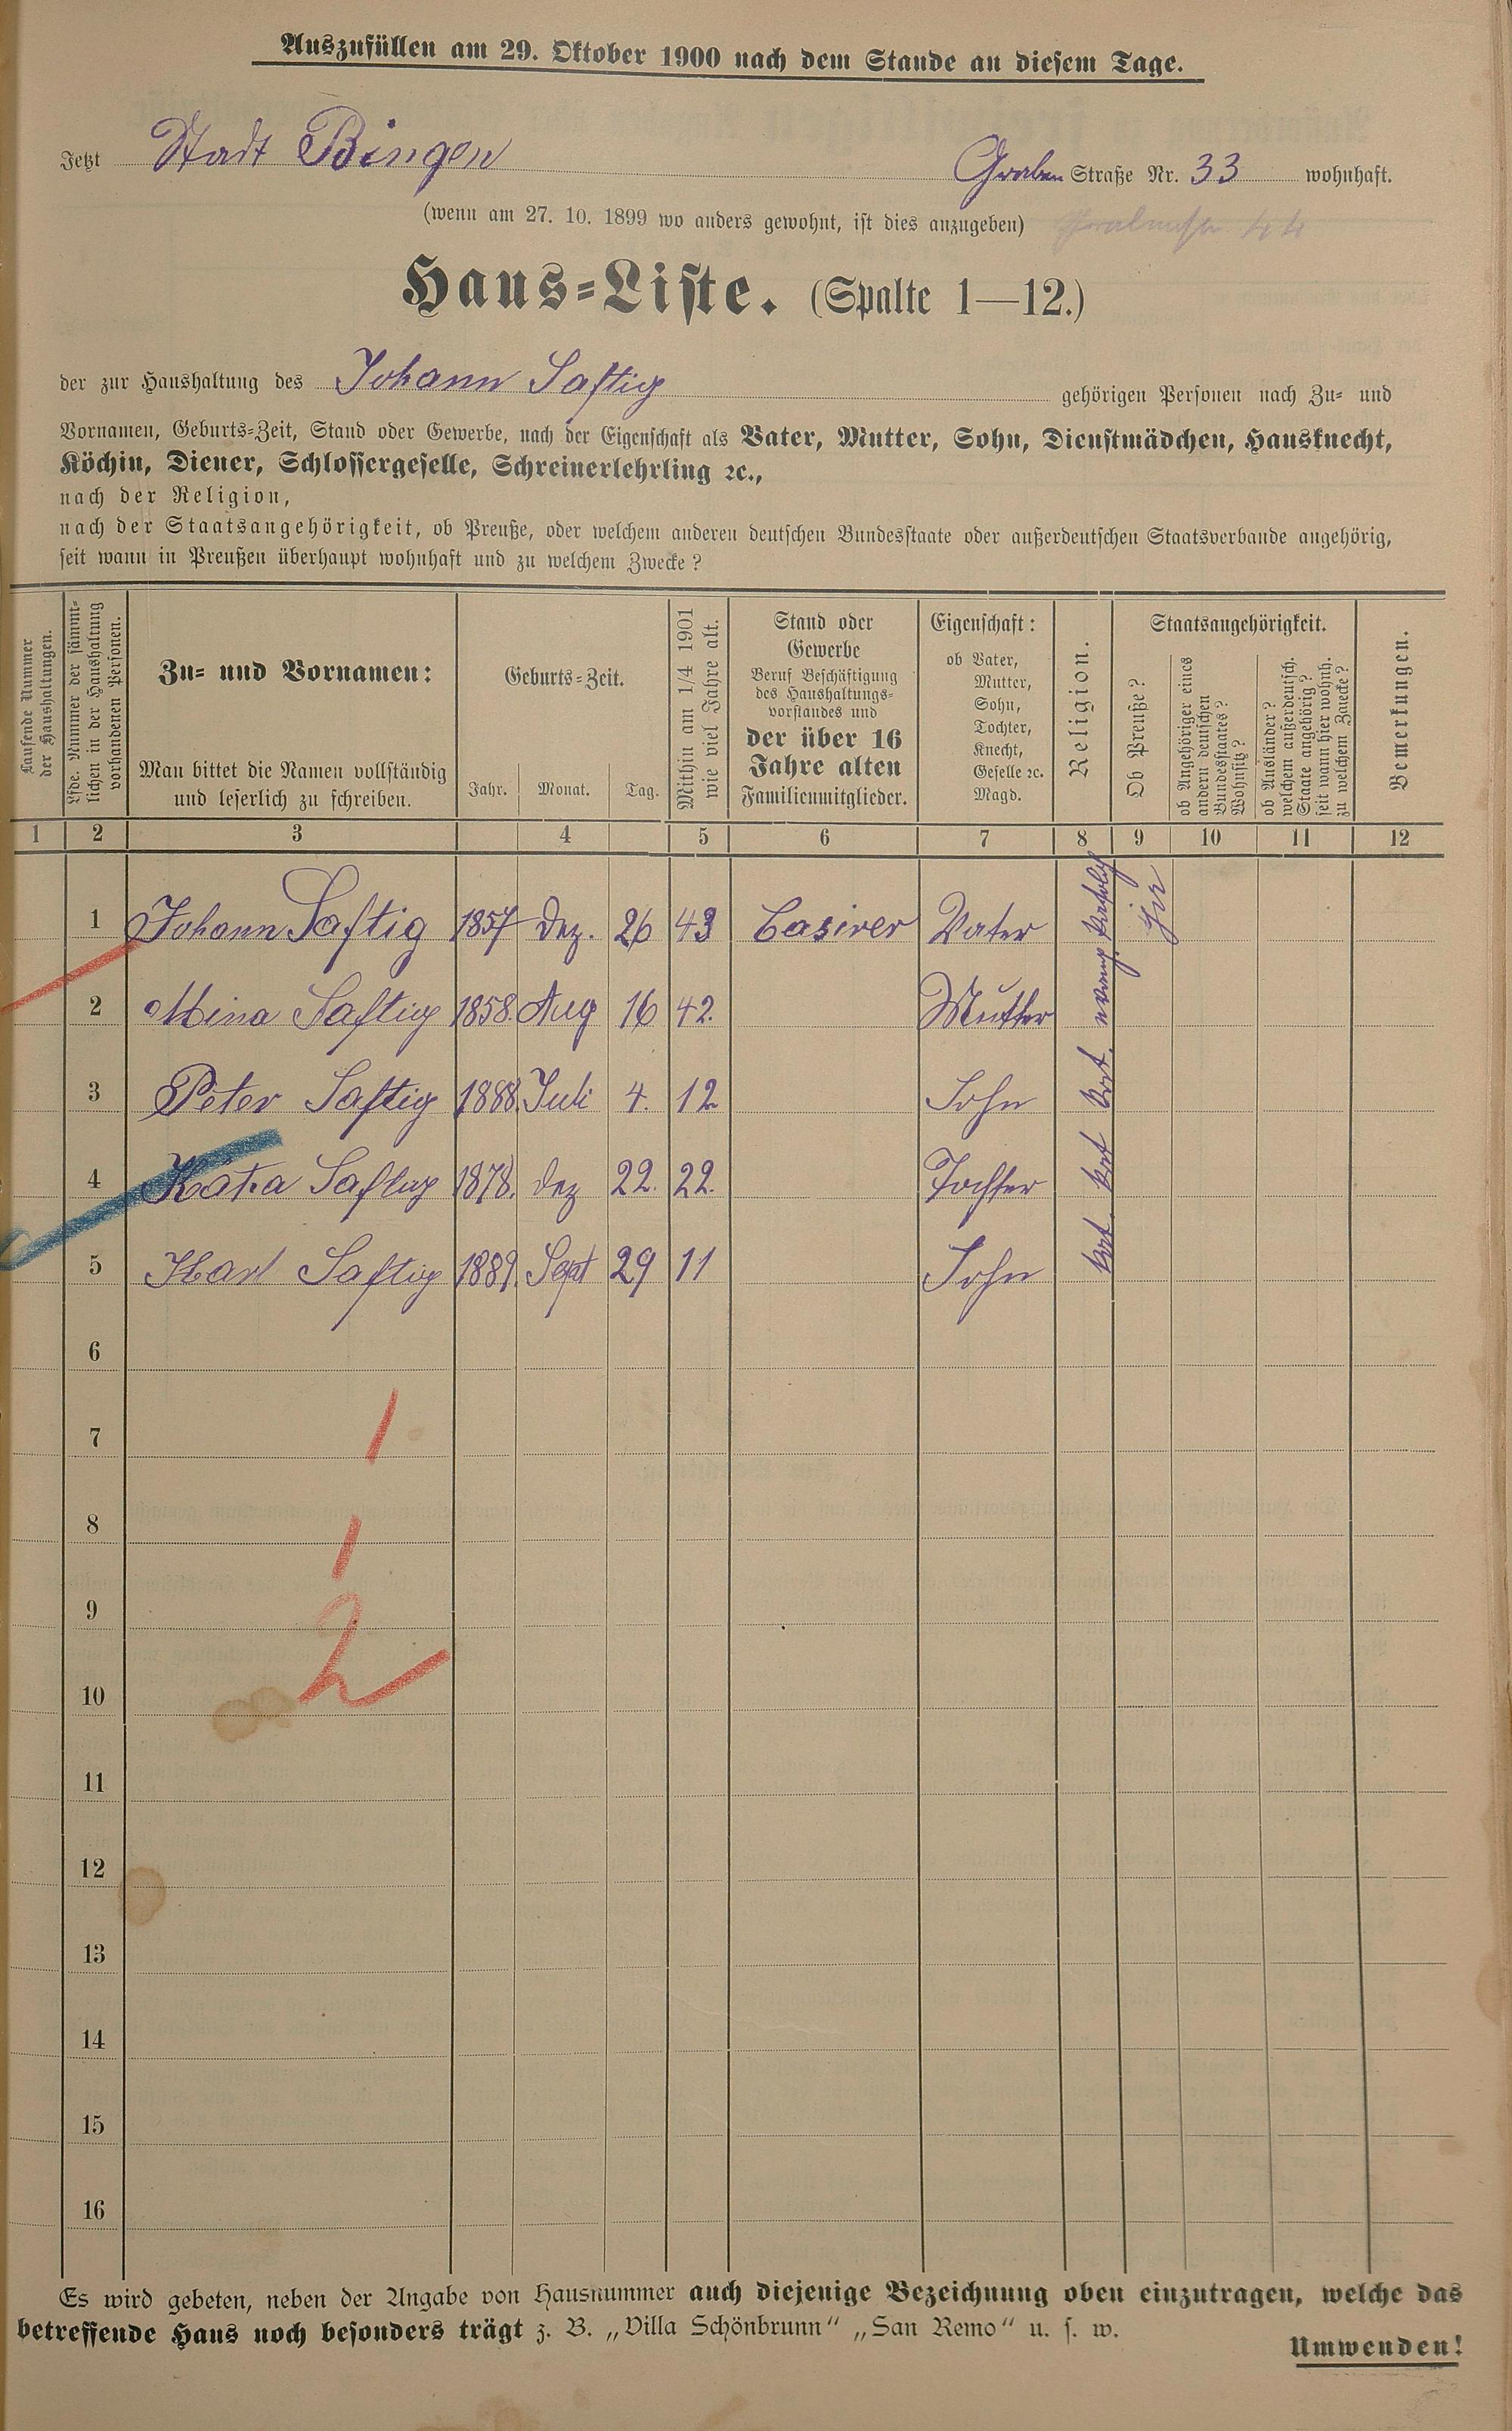 Auszufüllen am 29. Oktober 1900 nach dem Stande an diesem Tage.
Jetzt Stadt Bingen Graben Straße Nr. 33 wohnhaft.
(wenn am 27. 10. 1899 wo anders gewohnt, ist dies anzugeben) 44
Haus-Liste. (Spalte 1—12.)
der zur Haushaltung des Johann Saftig gehörigen Personen nach Zu- und
Vornamen, Geburts-Zeit, Stand oder Gewerbe, nach der Eigenschaft als Vater, Mutter, Sohn, Dienstmädchen, Hausknecht,
Köchin, Diener, Schlossergeselle, Schreinerlehrling ꝛc.,
nach der Religion,
nach der Staatsangehörigkeit, ob Preuße, oder welchem anderen deutschen Bundesstaate oder außerdeutschen Staatsverbande angehörig,
seit wann in Preußen überhaupt wohnhaft und zu welchem Zwecke?
Laufende Nummer
der Haushaltungen.
Lfde. Nummer der sämmt-
lichen in der Haushaltung
vorhandenen Personen.
Zu- und Vornamen:
Man bittet die Namen vollständig
und leserlich zu schreiben.
Geburts-Zeit.
Jahr. Monat. Tag.
Mithin am 1/4 1901
wie viel Jahre alt.
Stand oder
Gewerbe
Beruf Beschäftigung
des Haushaltungs-
vorstandes und
der über 16
Jahre alten
Familienmitglieder.
Eigenschaft:
ob Vater,
Mutter,
Sohn,
Tochter,
Knecht,
Geselle ꝛc.
Magd.
Religion.
Staatsangehörigkeit.
Ob Preuße?
ob Angehöriger eines
andern deutschen
Bundesstaates?
Wohnsitz?
ob Ausländer?
welchem außerdeutsch.
Staate angehörig?
seit wann hier wohnh.
zu welchem Zwecke?
Bemerkungen.
1 2 3 4 5 6 7 8 9 10 11 12
1 Johann Saftig 1857 Dez. 26 43 Casirer Vater Kathol ja
2 Mina Saftig 1858. Aug 16 42. Mutter evang.
3 Peter Saftig 1888. Juli 4. 12 Sohn Kat.
4 Käta Saftig 1878. Dez 22. 22. Tochter Kat
5 Karl Saftig 1889. Sept 29 11 Sohn Kat.
6
7 1
8 1
9
10 2
11
12
13
14
15
16
Es wird gebeten, neben der Angabe von Hausnummer auch diejenige Bezeichnung oben einzutragen, welche das
betreffende Haus noch besonders trägt z. B. „Villa Schönbrunn“ „San Remo“ u. s. w.
Umwenden!